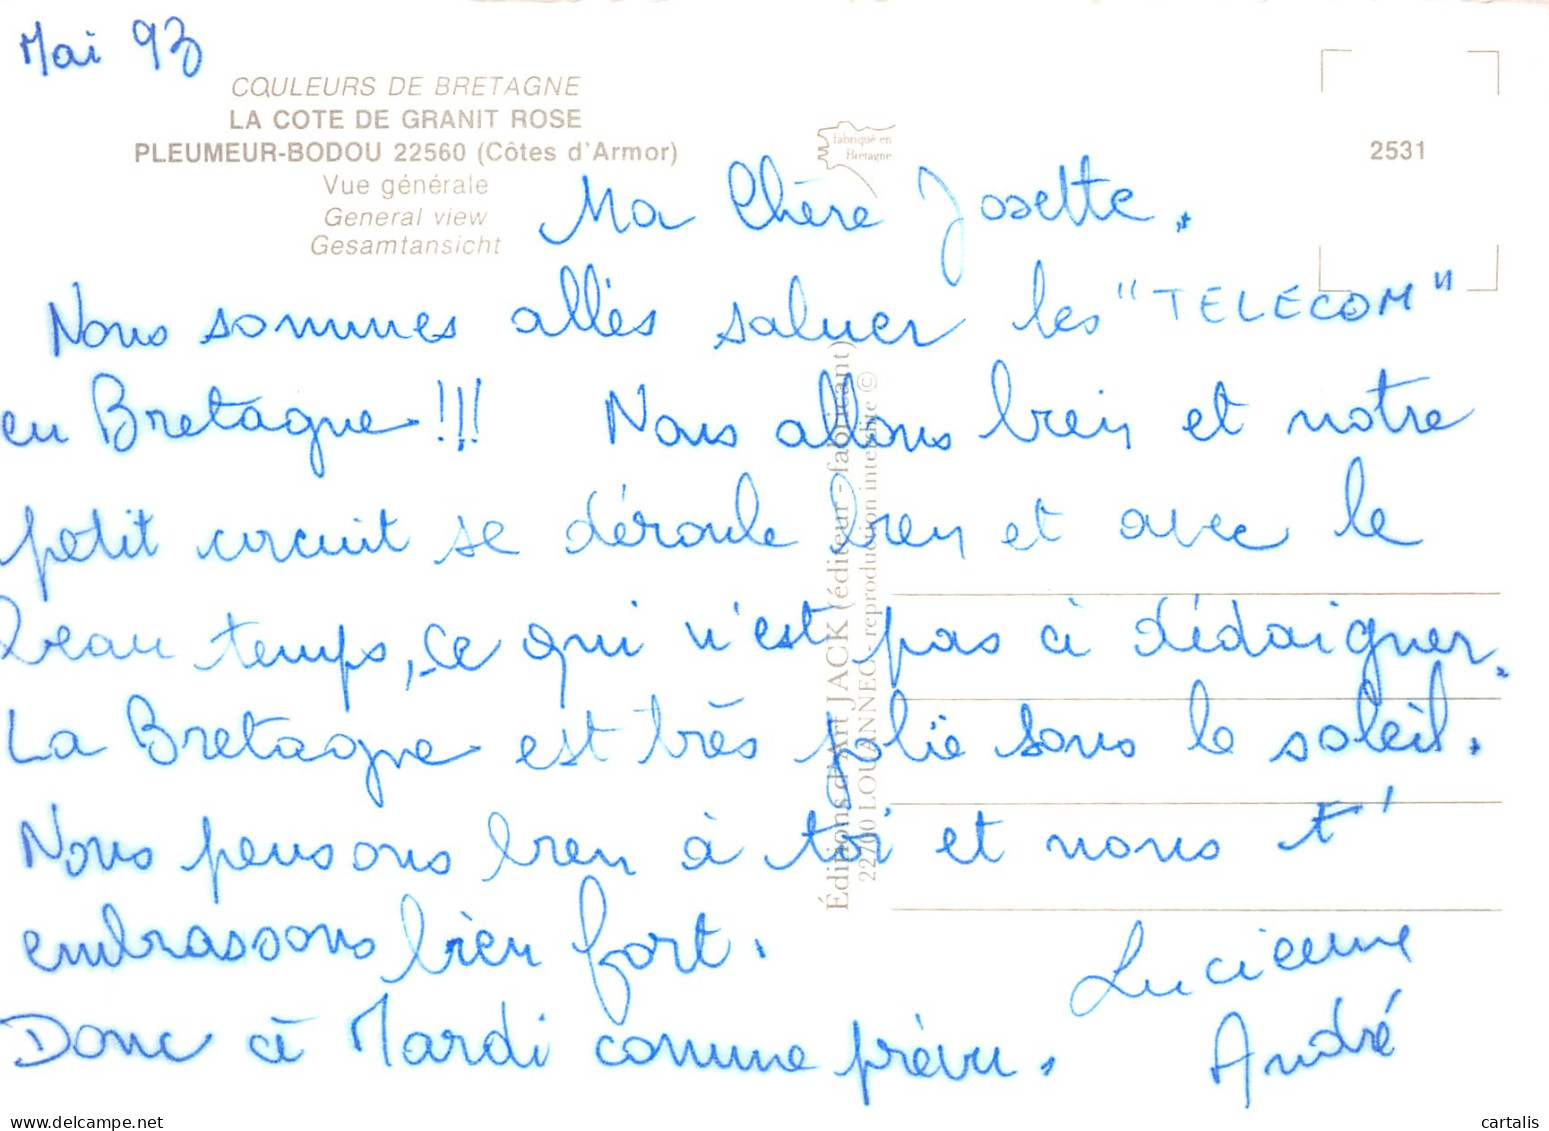 Mai 93
COULEURS DE BRETAGNE
LA COTE DE GRANIT ROSE
PLEUMEUR-BODOU 22560 (Côtes d'Armor)
Vue générale
General view
Gesamtansicht
fabriqué en
Bretagne
2531
Ma Chère Josette,
Nous sommes allés saluer les "TELECOM"
en Bretagne !!! Nous allons bien et notre
petit circuit se déroule bien et avec le
beau temps, ce qui n'est pas à dédaigner.
La Bretagne est très jolie sous le soleil.
Nous pensons bien à toi et nous t'
embrassons bien fort.
Donc à Mardi comme prévu.
Lucienne
André
Éditions d'Art JACK (éditeur - fabricant)
22700 LOUANNEC reproduction interdite ©
www.delcampe.net
cartalis